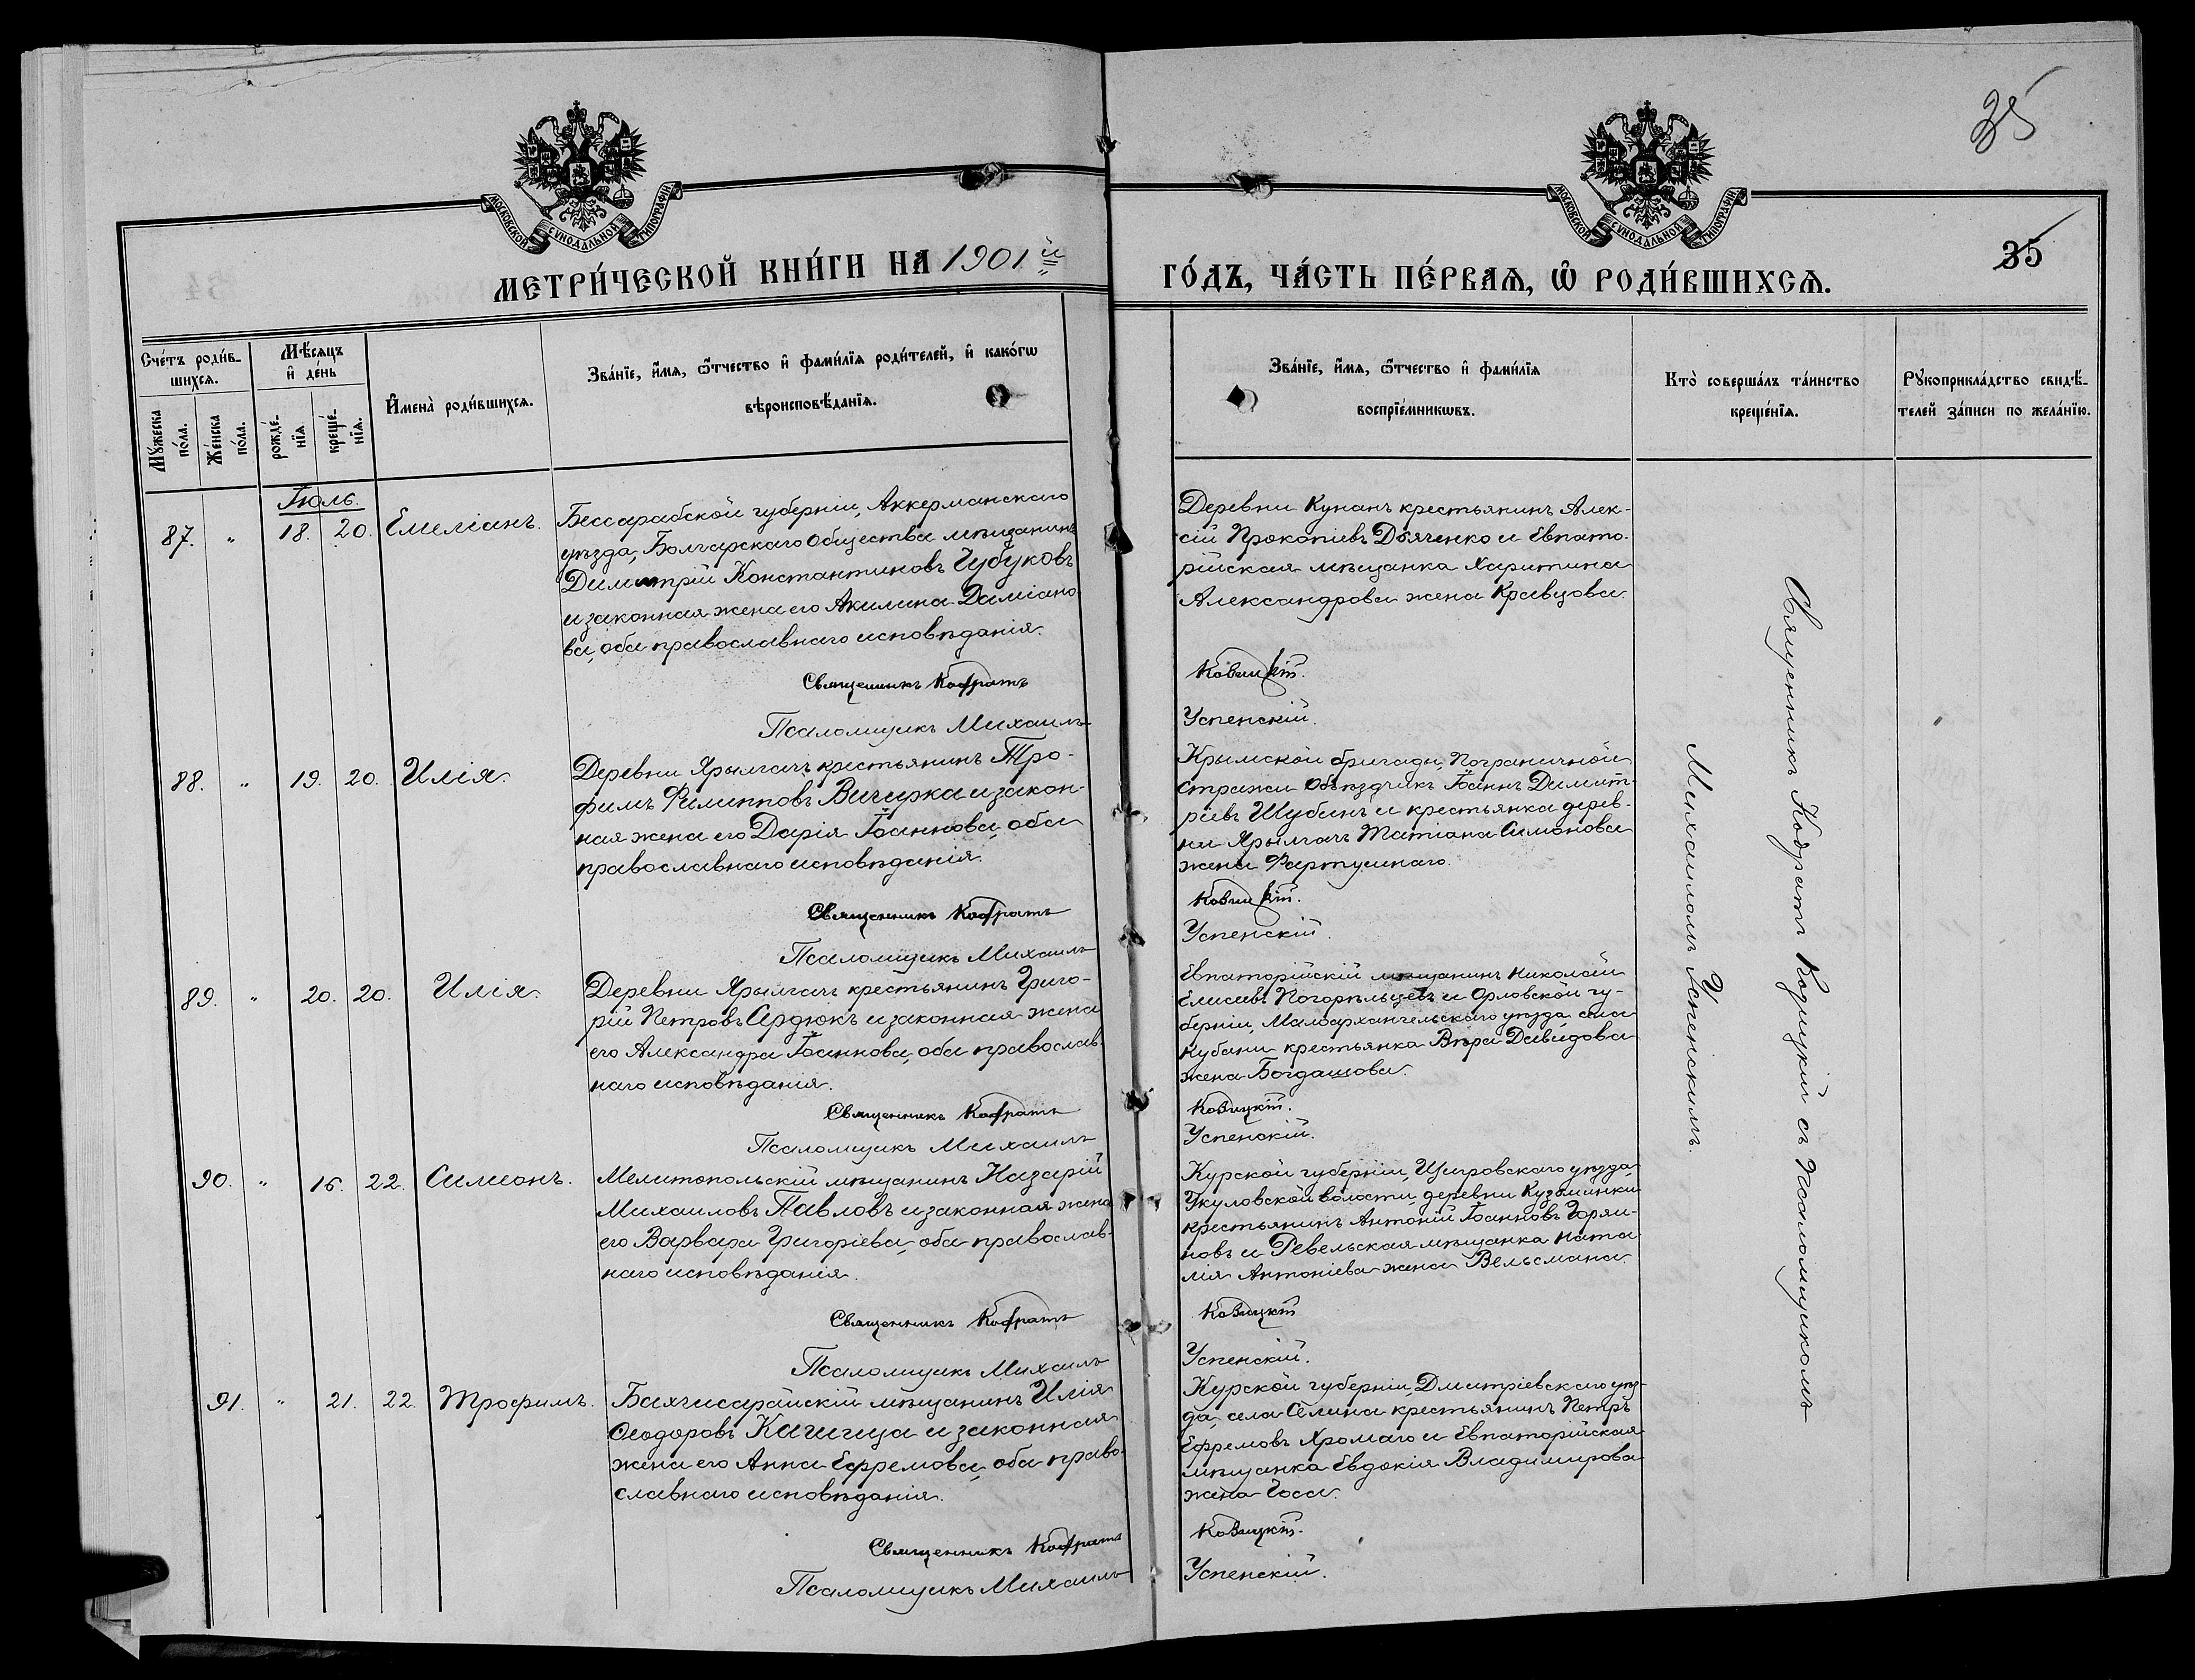 35
МОСКОВСКОЙ СУНОДАЛЬНОЙ ТИПОГРАФІИ
МОСКОВСКОЙ СУНОДАЛЬНОЙ ТИПОГРАФІИ
35
МЕТРИ́ЧЕСКОЙ КНИ́ГИ НА 1901 й
ГО́ДЪ, ЧА́СТЬ ПЕ́РВАѦ, Ѽ РОДИ́ВШИХСѦ.
Сче́тъ роди́в-
шихсѧ.
Мꙋ́жеска по́ла.
Же́нска по́ла.
Мѣ́сѧцъ
и҆ де́нь
рожде́-
нїѧ
креще́-
нїѧ.
И҆мена̀ роди́вшихсѧ.
Зва́нїе, и҆́мѧ, ѻ҆́тчество и҆ фами́лїѧ роди́телей, и҆ како́гѡ
вѣроисповѣ́данїѧ.
Зва́нїе, и҆́мѧ, ѻ҆́тчество и҆ фами́лїѧ
воспрїе́мникѡвъ.
Кто̀ соверша́лъ та́инство
креще́нїѧ.
Рꙋкоприкла́дство свидѣ́-
телей за́писи по жела́нїю.
Іюль.
87. " 18. 20. Емеліанъ.
Бессарабской губерніи, Аккерманскаго
уѣзда, Болгарскаго Общества мѣщанинъ
Димитрій Константиновъ Чубуковъ
и законная жена его Акилина Даміано-
ва, оба православнаго исповѣданія.
Священникъ Кодратъ
Псаломщикъ Михаилъ
Деревни Кунанъ крестьянинъ Алек-
сій Прокопіевъ Дьяченко и Евпато-
рійская мѣщанка Харитина
Александрова жена Кравцова.
Успенскій.
88. " 19. 20. Илія.
Деревни Ярылгачъ крестьянинъ Тро-
фимъ Филипповъ Вичирка и закон-
ная жена его Дарія Іоаннова, оба
православнаго исповѣданія.
Священникъ Кодратъ
Псаломщикъ Михаилъ
Крымской бригады, Пограничной
стражи Объѣздчикъ Іоаннъ Димит-
ріевъ Шубинъ и крестьянка дерев-
ни Ярылгачъ Татіана Симонова
жена Фартушнаго.
Успенскій.
89. " 20. 20. Илія.
Деревни Ярылгачъ крестьянинъ Григо-
рій Петровъ Сердюкъ и законная жена
его Александра Іоаннова, оба православ-
наго исповѣданія.
Священникъ Кодратъ
Псаломщикъ Михаилъ
Евпаторійскій мѣщанинъ Николай
Елисеевъ Погорѣльцевъ и Орловской гу-
берніи, Малоархангельскаго уѣзда села
Кубани крестьянка Вѣра Давидова
жена Богдашова.
Успенскій.
90. " 16. 22. Симеонъ.
Мелитопольскій мѣщанинъ Назарій
Михаиловъ Павловъ и законная жена
его Варвара Григоріева, оба православ-
наго исповѣданія.
Священникъ Кодратъ
Псаломщикъ Михаилъ
Курской губерніи, Щигровскаго уѣзда
Укуловской волости, деревни Кузминки
крестьянинъ Антоній Іоанновъ Горяи-
новъ и Ревельская мѣщанка Ната-
лія Антоніева жена Вельсмана.
Успенскій.
91. " 21. 22. Трофимъ.
Бахчисарайскій мѣщанинъ Илія
Ѳеодоровъ Качигца и законная
жена его Анна Ефремова, оба право-
славнаго исповѣданія.
Священникъ Кодратъ
Псаломщикъ Михаилъ
Курской губерніи, Дмитріевскаго уѣз-
да, села Селина крестьянинъ Петръ
Ефремовъ Хромаго и Евпаторійская
мѣщанка Евдокія Владимирова
жена Госа.
Успенскій.
Священникъ Кодратъ Ковицкій съ Псаломщикомъ
Михаиломъ Успенскимъ.